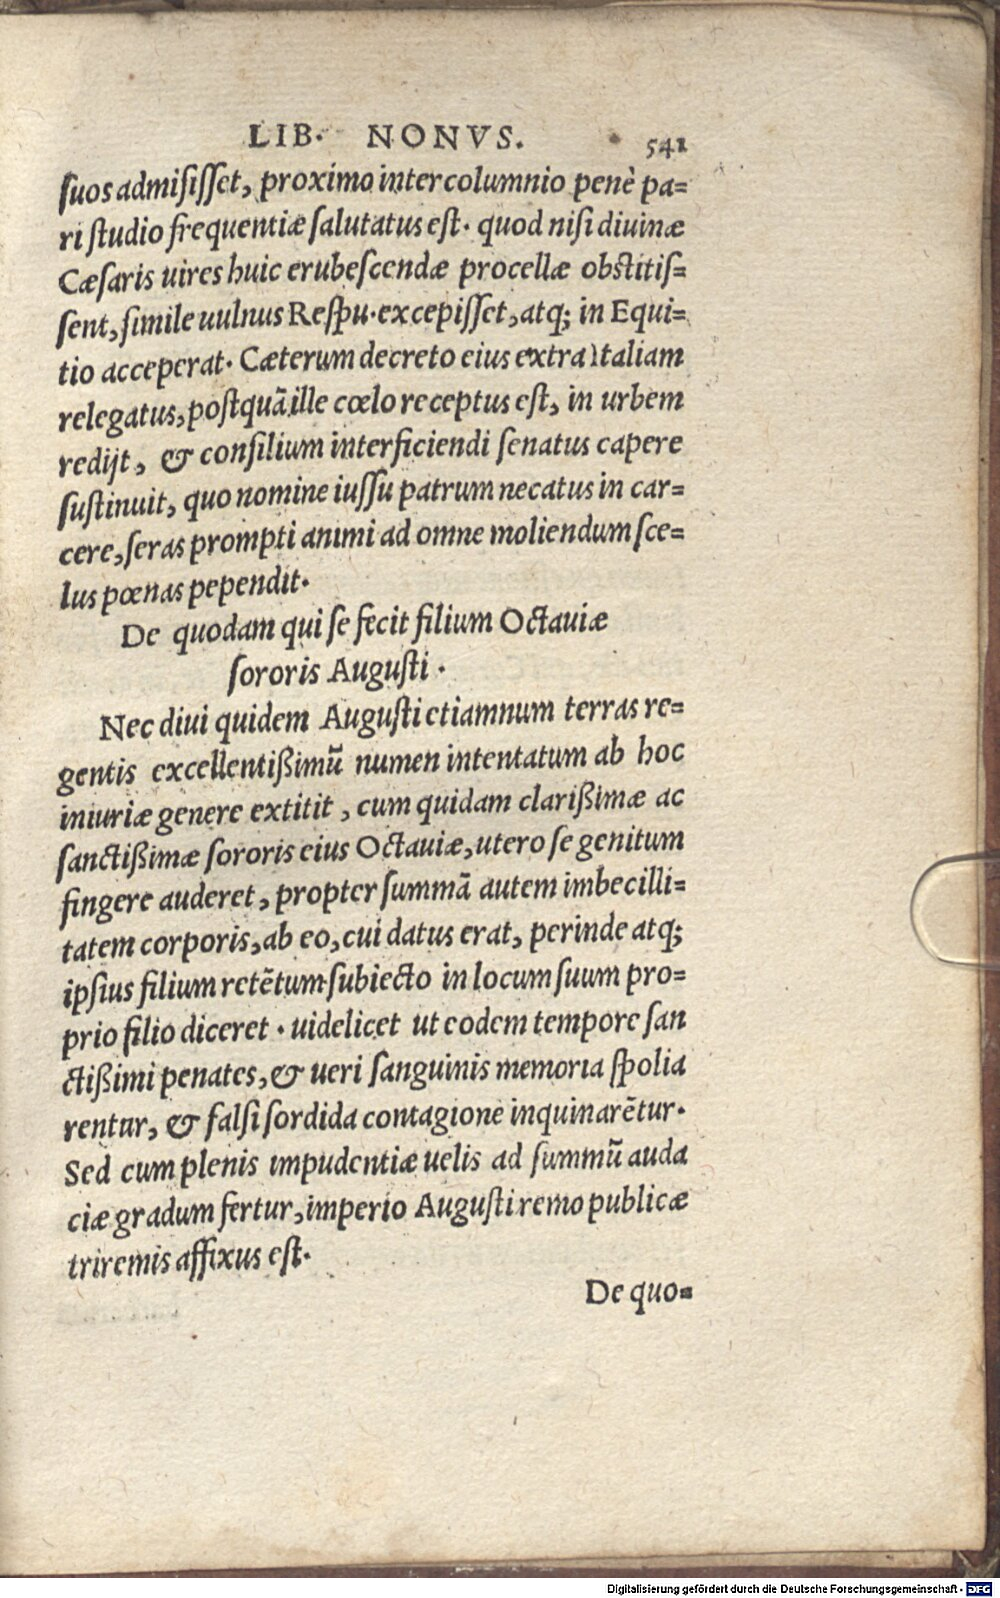 LIB. NONVS. 541
suos admisisset, proximo intercolumnio penè pa=
ri studio frequentiæ salutatus est. quod nisi diuinæ
Cæsaris uires huic erubescendæ procellæ obstitis=
sent, simile uulnus Respu. excepisset, atq; in Equi=
tio acceperat. Cæterum decreto eius extra Italiam
relegatus, postquã ille cœlo receptus est, in urbem
redijt, & consilium interficiendi senatus capere
sustinuit, quo nomine iussu patrum necatus in car=
cere, seras prompti animi ad omne moliendum sce=
lus pœnas pependit.
De quodam qui se fecit filium Octauiæ
sororis Augusti.
Nec diui quidem Augusti etiamnum terras re=
gentis excellentißimũ numen intentatum ab hoc
iniuriæ genere extitit, cum quidam clarißimæ ac
sanctißimæ sororis eius Octauiæ, utero se genitum
fingere auderet, propter summã autem imbecilli=
tatem corporis, ab eo, cui datus erat, perinde atq;
ipsius filium retẽtum subiecto in locum suum pro=
prio filio diceret. uidelicet ut eodem tempore san
ctißimi penates, & ueri sanguinis memoria spolia
rentur, & falsi sordida contagione inquinarẽtur.
Sed cum plenis impudentiæ uelis ad summũ auda
ciæ gradum fertur, imperio Augusti remo publicæ
triremis affixus est.
De quo=
Digitalisierung gefördert durch die Deutsche Forschungsgemeinschaft - DFG